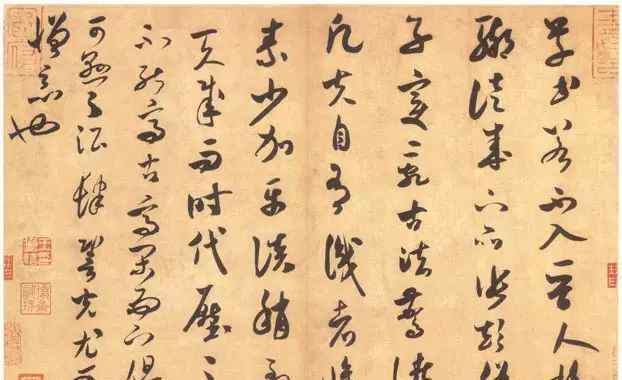 草書若不入晉人格
聊徒成下品張顛俗
子變亂古法驚諸
凡夫自有識者
素少加平淡稍到
天成而時代壓之
不能高古高閑而下但
可懸之酒肆䛒光尤可
憎惡也